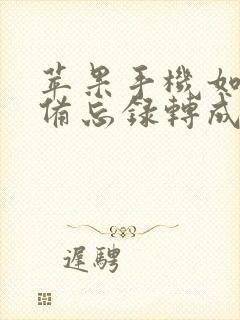 苹果手機如
備忘錄轉成
遲騁